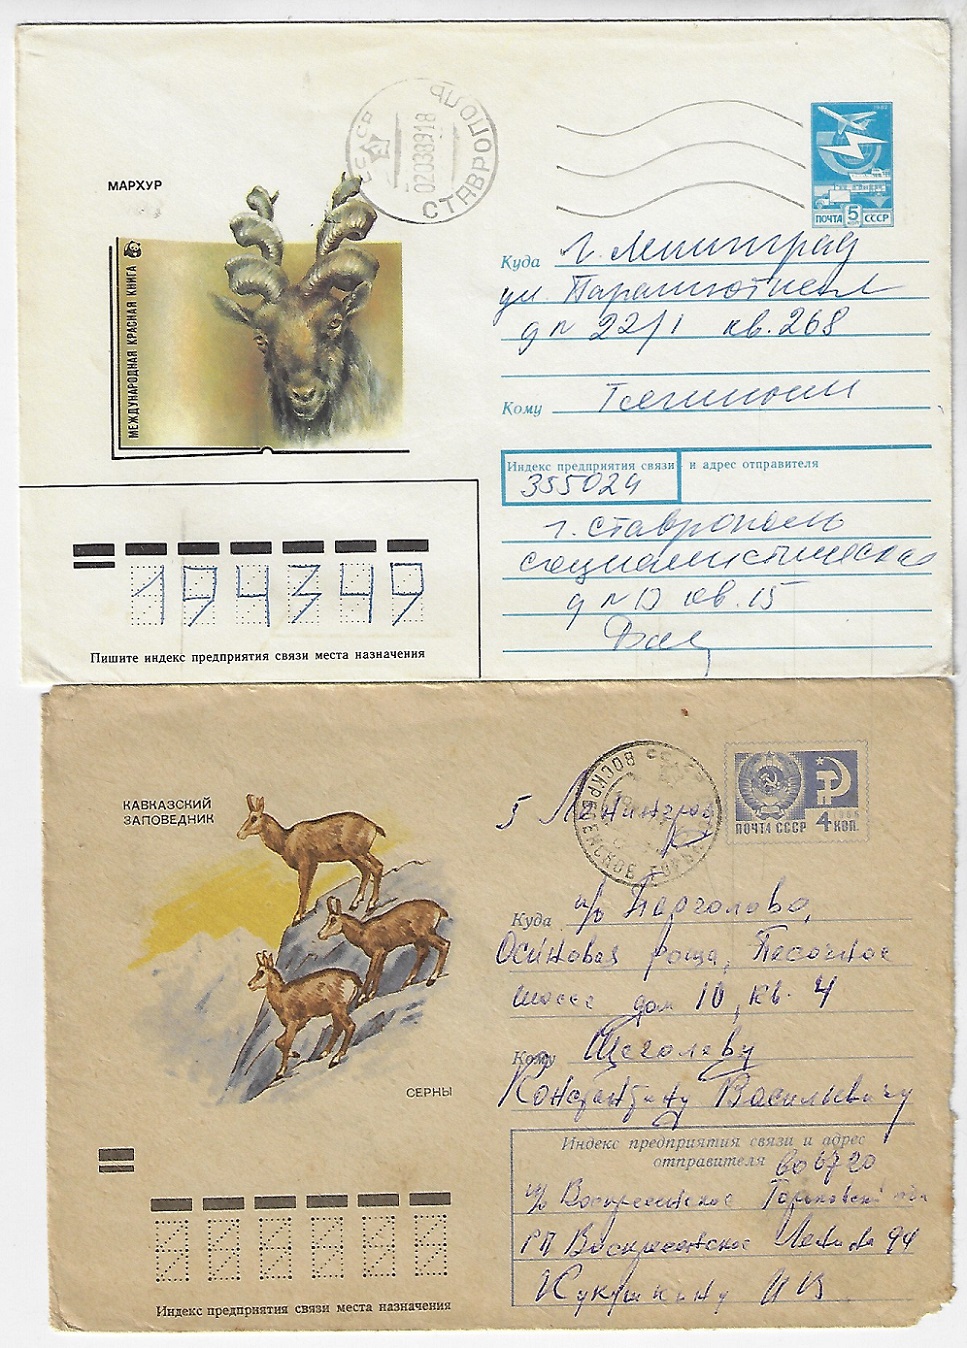 МАРХУР
МЕЖДУНАРОДНАЯ КРАСНАЯ КНИГА
СССР
СТАВРОПОЛЬ
02038918
ПОЧТА 5 СССР
Куда г. Ленинград
ул.
д № 22/1 кв. 268
Кому
Индекс предприятия связи и адрес отправителя
355029
г. Ставрополь
социалистическая
д № 12 кв. 15
194349
Пишите индекс предприятия связи места назначения
КАВКАЗСКИЙ
ЗАПОВЕДНИК
СЕРНЫ
СССР
ВОСКРЕСЕНСКОЕ
ПОЧТА СССР 4 КОП.
1966
г Ленинград
Куда п/о Парголово,
Осиновая роща, Песочное
шоссе дом 10, кв. 4
Кому Щеголеву
Константину Васильевичу
Индекс предприятия связи и адрес
отправителя 606720
п/о Воскресенское Горьковской обл
РП Воскресенское Ленина 94
Кукушкину И В
Индекс предприятия связи места назначения